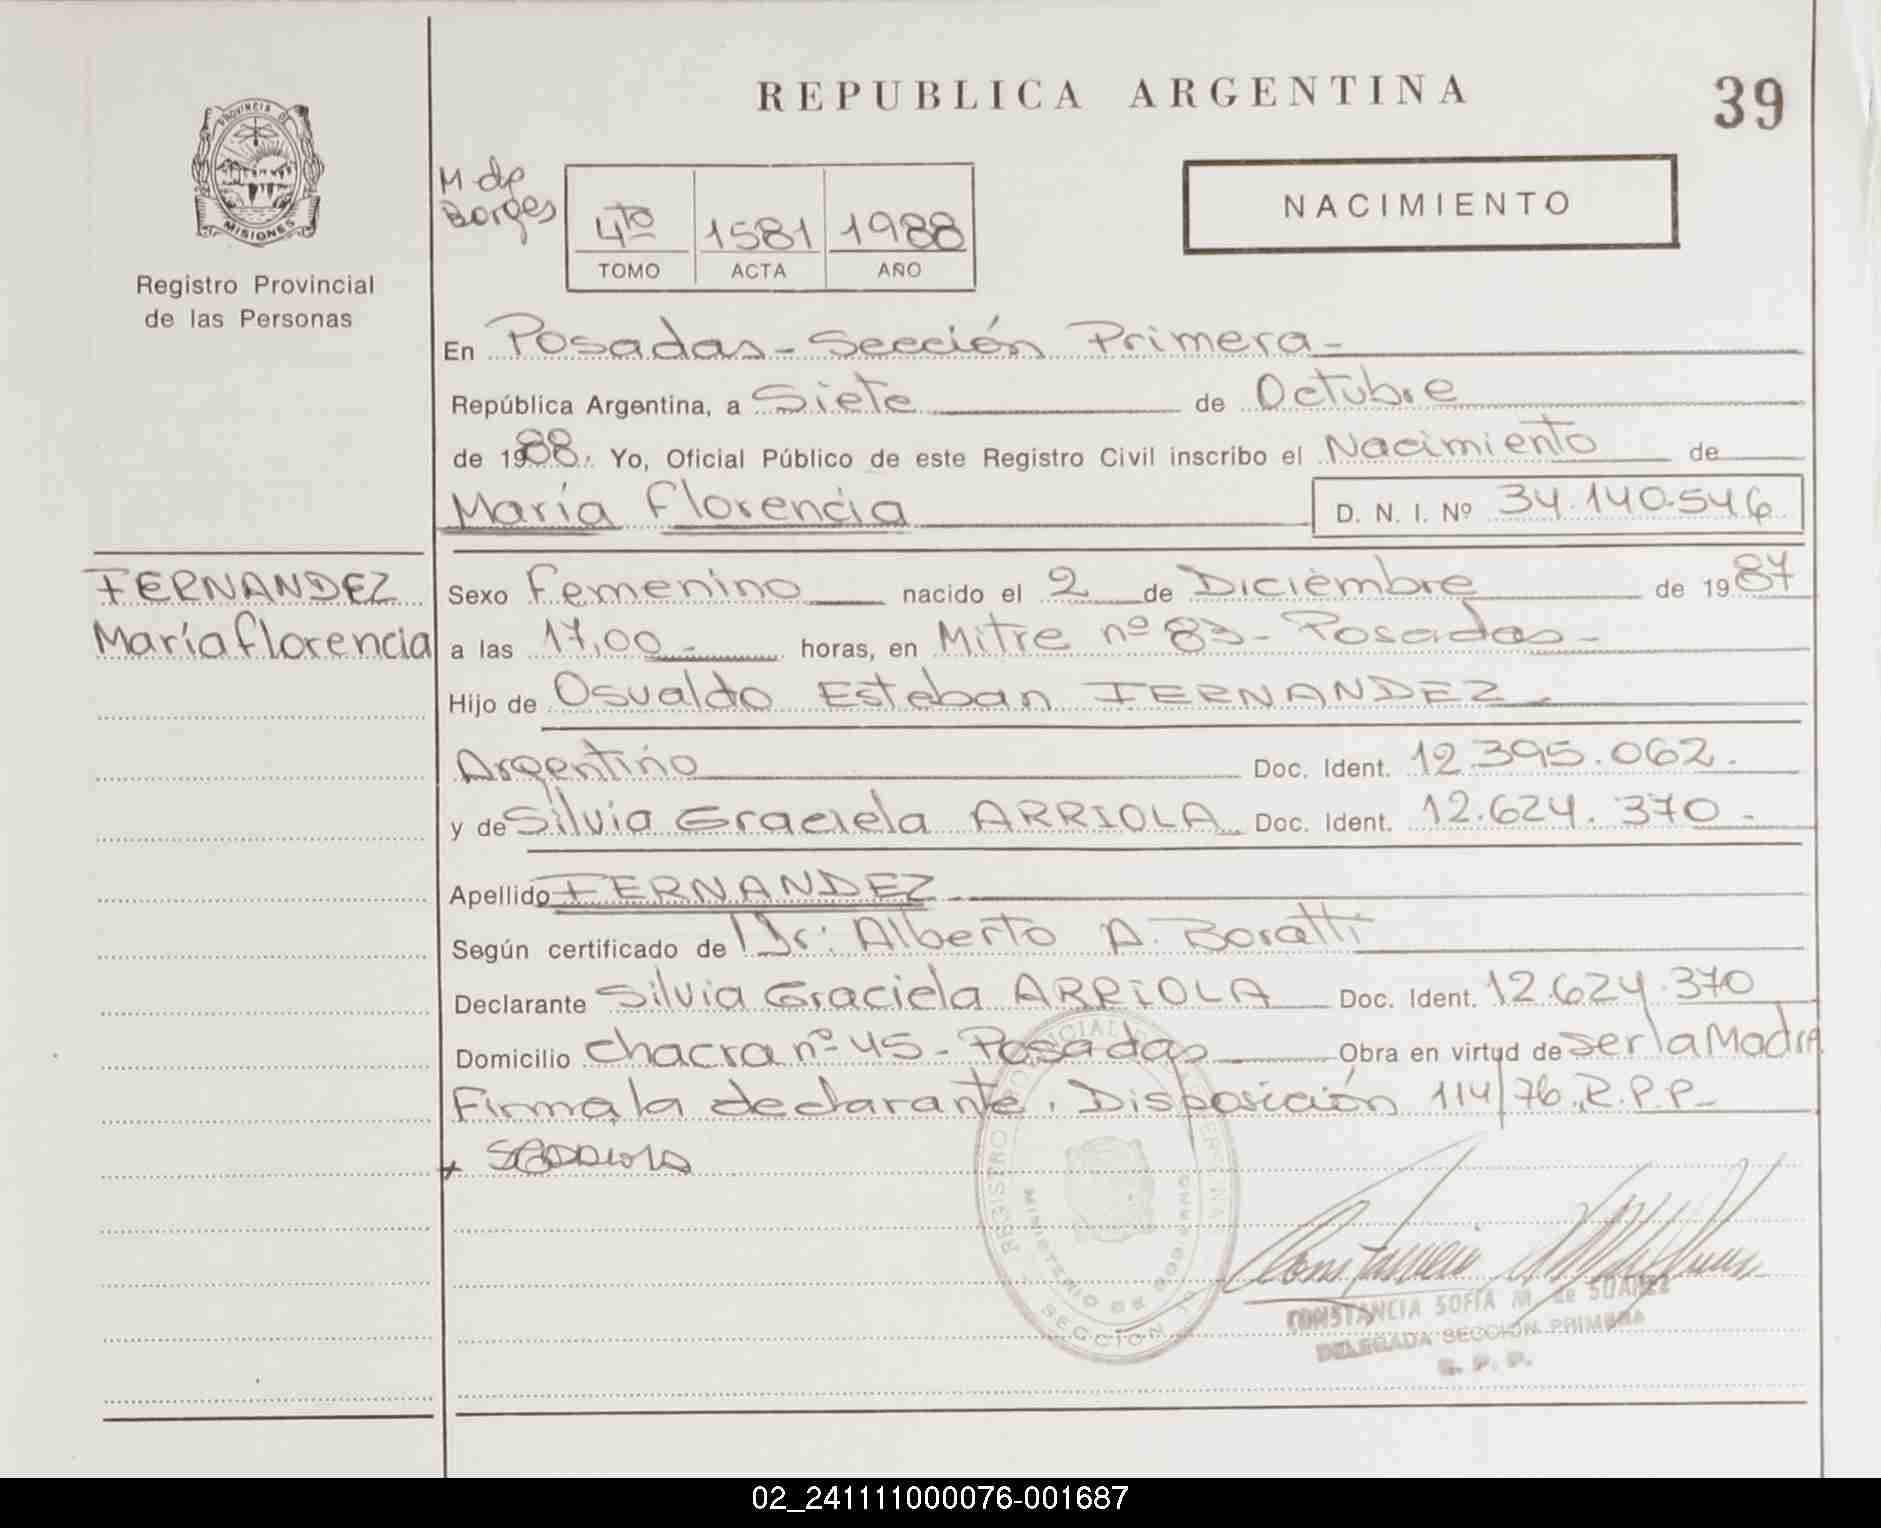 REPUBLICA ARGENTINA
39
PROVINCIA DE
MISIONES
Registro Provincial
de las Personas
M de
Borges
4to 1581 1988
TOMO ACTA AÑO
NACIMIENTO
En Posadas - Sección Primera -
República Argentina, a Siete de Octubre
de 1988. Yo, Oficial Público de este Registro Civil inscribo el Nacimiento de
María Florencia D. N. I. Nº 34.140.546
FERNANDEZ
María Florencia
Sexo Femenino nacido el 2 de Diciembre de 1987
a las 17,00 - horas, en Mitre nº 83 - Posadas -
Hijo de Osvaldo Esteban FERNANDEZ -
Argentino Doc. Ident. 12.395.062.
y de Silvia Graciela ARRIOLA Doc. Ident. 12.624.370 -
Apellido FERNANDEZ
Según certificado de Dr: Alberto A. Boratti
Declarante Silvia Graciela ARRIOLA Doc. Ident. 12.624.370
Domicilio Chacra nº 45 - Posadas Obra en virtud de ser la Madre
Firma, la declarante. Disposición 114/76. R.P.P.
REGISTRO PROVINCIAL DE LAS PERSONAS
MINISTERIO DE GOBIERNO
SECCION 1
CONSTANCIA SOFIA M. de SUAREZ
DELEGADA SECCION PRIMERA
R. P. P.
02_241111000076-001687